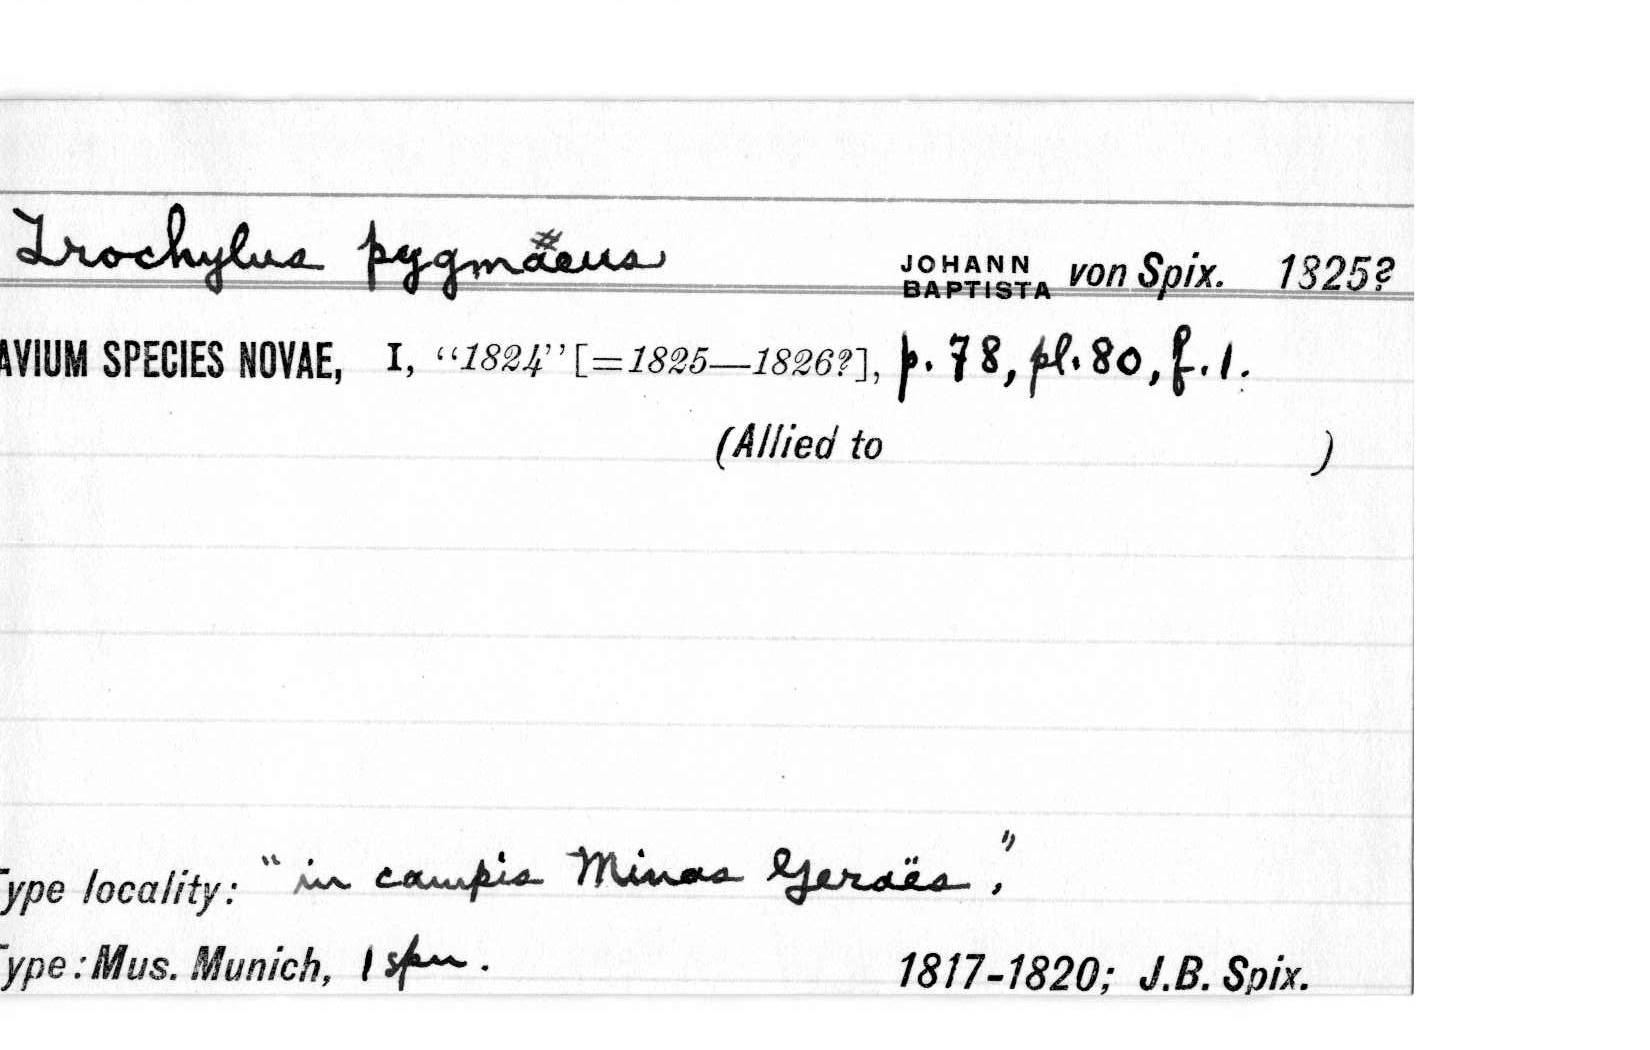 Trochylus pygmaeus JOHANN BAPTISTA von Spix. 1825?
AVIUM SPECIES NOVAE, I, “1824” [=1825—1826?], p. 78, pl. 80, f. 1.
(Allied to )
Type locality: "in campis Minas Geraës",
Type: Mus. Munich, 1 spm. 1817-1820; J.B. Spix.